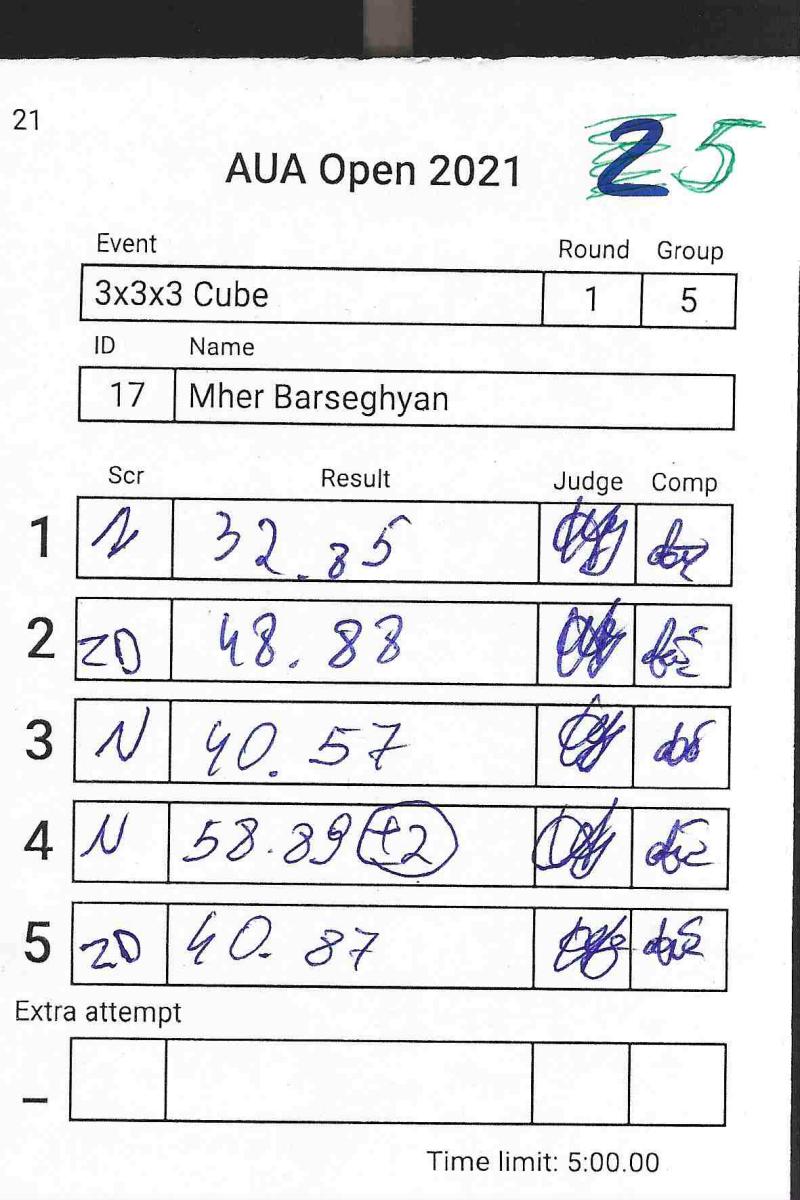 21
25
AUA Open 2021
Event Round Group
3x3x3 Cube 1 5
ID Name
17 Mher Barseghyan
Scr Result Judge Comp
1 N 32.85
2 ZD 48.88
3 N 40.57
4 N 58.89 +2
5 ZD 40.87
Extra attempt
_
Time limit: 5:00.00